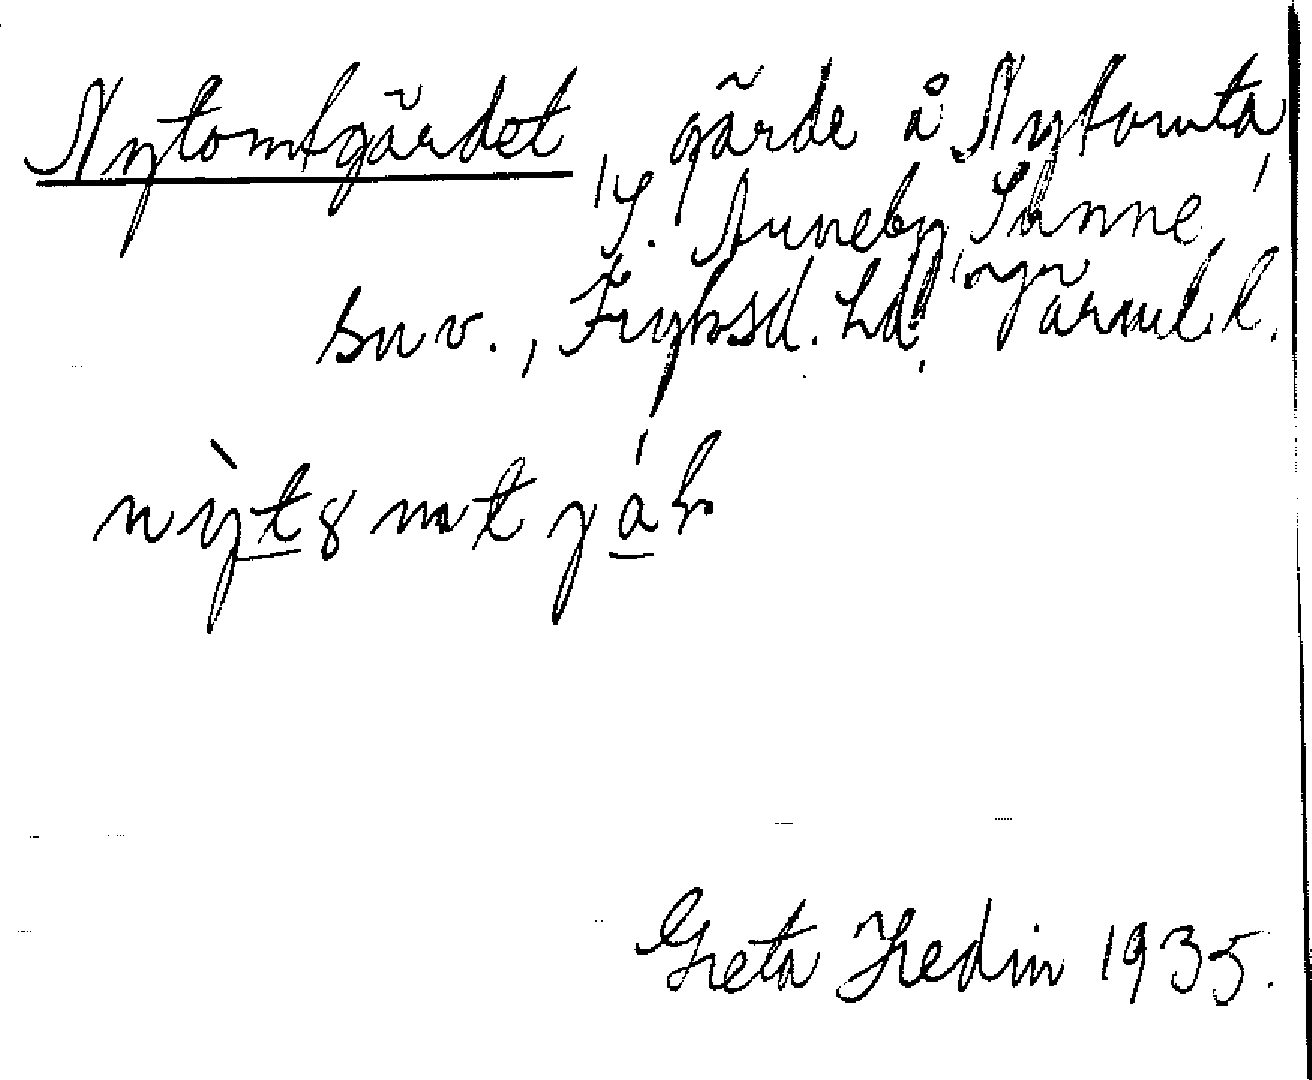 Nytomtgärdet, gärde å Nytomta,
S. Auneby, Sunne
sn v., Fryksd. hd. Värml. l.
Greta Hedin 1935.